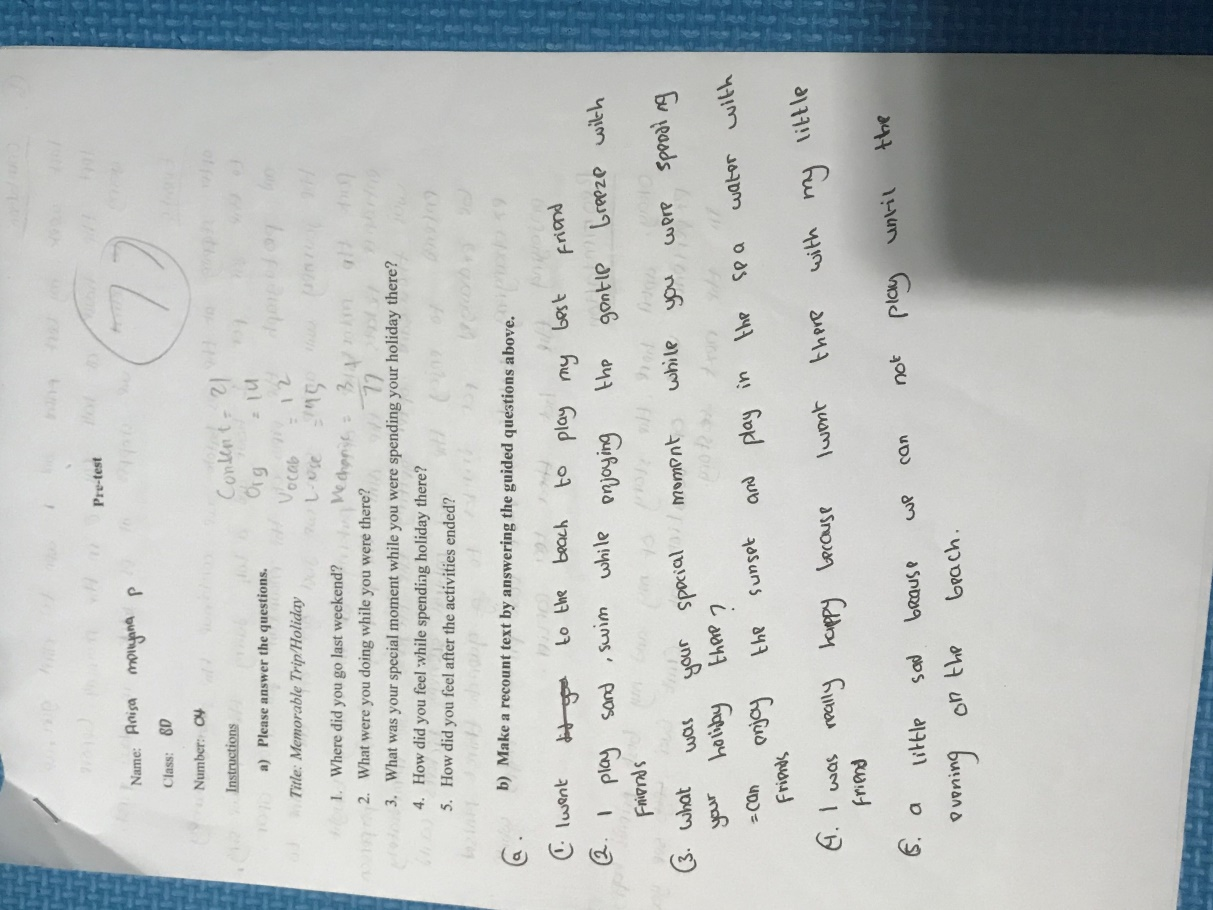 Pre-test
77
Name: Anisa P
Class: 8D
Number: 04
Content = 21
Org = 14
Vocab = 12
L-use
Mechanic = 3
77
Instructions
a) Please answer the questions.
Title: Memorable Trip/Holiday
1. Where did you go last weekend?
2. What were you doing while you were there?
3. What was your special moment while you were spending your holiday there?
4. How did you feel while spending holiday there?
5. How did you feel after the activities ended?
b) Make a recount text by answering the guided questions above.
a.
1. I went to the beach to play my best Friend
2. I play sand, swim while enjoying the gentle breeze with
Friends
3. what was your special moment while you were spending
your holiday there?
=can enjoy the sunset and play in the sea water with
Friends
4. I was really happy because I went there with my little
Friend
5. a little sad because we can not play until the
evening on the beach.